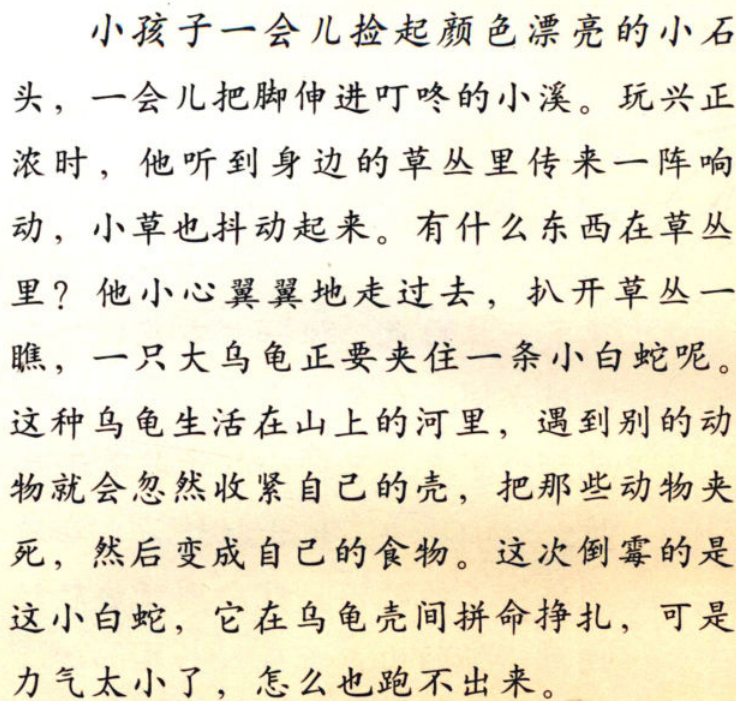 小孩子一会儿捡起颜色漂亮的小石
头，一会儿把脚伸进叮咚的小溪。玩兴正
浓时，他听到身边的草丛里传来一阵响
动，小草也抖动起来。有什么东西在草丛
里？他小心翼翼地走过去，扒开草丛一
瞧，一只大乌龟正要夹住一条小白蛇呢。
这种乌龟生活在山上的河里，遇到别的动
物就会忽然收紧自己的壳，把那些动物夹
死，然后变成自己的食物。这次倒霉的是
这小白蛇，它在乌龟壳间拼命挣扎，可是
力气太小了，怎么也跑不出来。